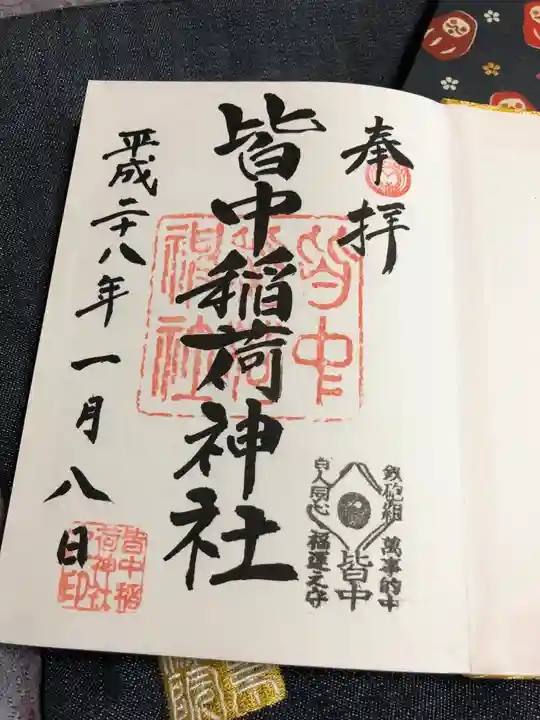 奉拝
皆中稲荷神社
平成二十八年一月八日
皆中
稲荷
神社
鉄砲組 萬事的中
皆中
百人同心 福運之守
皆中稲
荷神社
之印